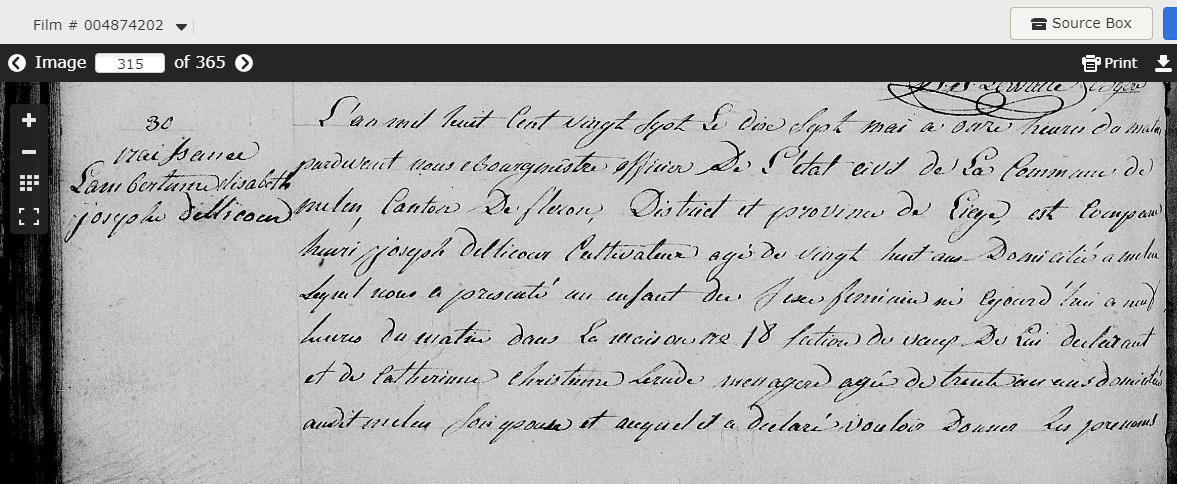 Film # 004874202
Source Box
Image 315 of 365
Print
30
naissance
Lambertine elisabeth
joseph dellicour
L'an mil huit Cent vingt Sept Le dixe Sept mai a onze heures du matin
pardevant nous bourgmestre officier De L'état civil de La Commune de
melen Canton De fleron, District et province de Liege, est Comparu
henri joseph dellicour Cultivateur agé de vingt huit ans Domicilié a melen
Lequel nous a presenté un enfant du Sexe feminin né ajourd'hui a neuf
heures du matin dans La maison no 18 section de De Lui declarant
et de Catherinne Christinne Lerude menagere agée de trente ans domiciliée
audit melen Son epouse et auquel il a declaré vouloir Donner Les prenoms